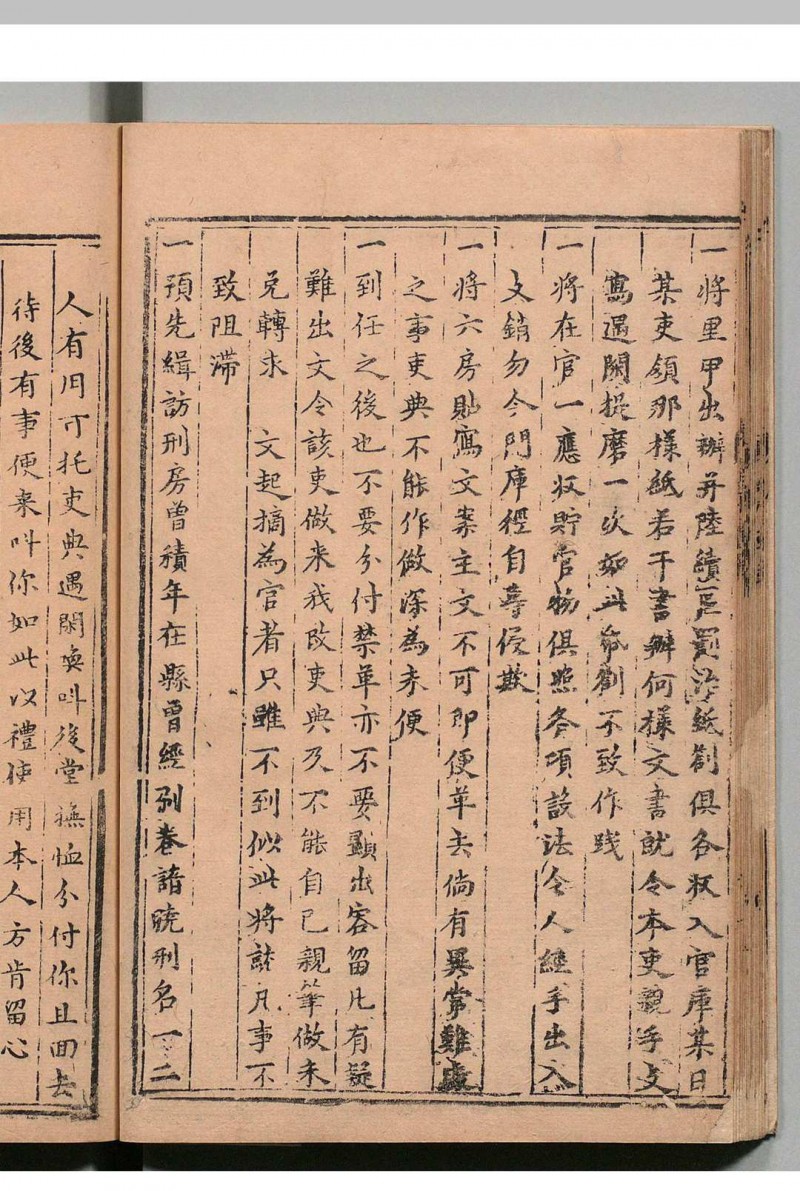 一將里甲出辦并陸續區罰許紙劄俱各収入官庫某日
某吏領那樣紙若干書辦何樣文書就令本吏親手支
寫遇關提磨一次如此紙劄不致作践
一將在官一應収貯官物俱照各項設法令人經手出入
支銷勿令門庫徑自專侵欺
一將六房貼寫文案主文不可即便革去倘有異常難處
之事吏典不能作做深為未便
一到任之後也不要分付禁革亦不要顯出容留凢有疑
難出文令該吏做来我改吏典乃不能自已親筆做未
免轉求 文起摘為官者只雖不到似此將該凡事不
致阻滯
一預先緝訪刑房曾積年在縣曾經刋卷諳暁刑名一二
人有用可托吏典遇閑喚叫後堂撫恤分付你且囬去
待後有事便来叫你如此以禮使用本人方肯留心